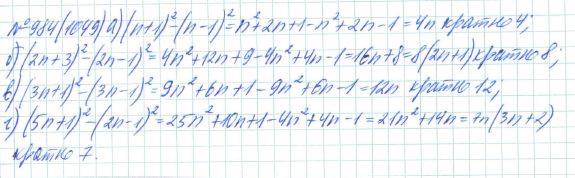 №984(1049) а) (n+1)²-(n-1)²=n²+2n+1-n²+2n-1=4n кратно 4;
б) (2n+3)²-(2n-1)²=4n²+12n+9-4n²+4n-1=16n+8=8(2n+1) кратно 8;
в) (3n+1)²-(3n-1)²=9n²+6n+1-9n²+6n-1=12n кратно 12;
г) (5n+1)²-(2n-1)²=25n²+10n+1-4n²+4n-1=21n²+14n=7n(3n+2)
кратно 7.